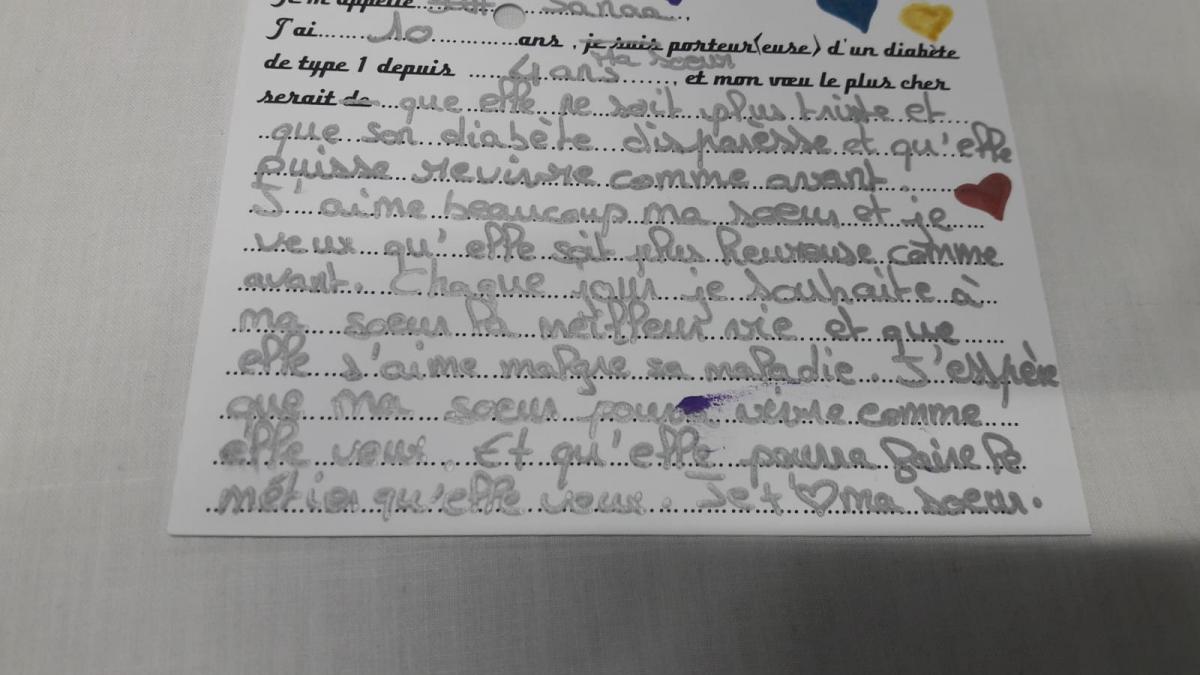 Je m'appelle Sanaa
J'ai 10 ans, je suis porteur(euse) d'un diabète
Ma soeur
de type 1 depuis 4 ans, et mon vœu le plus cher
serait de que elle ne soit plus triste et
que son diabète disparèsse et qu'elle
puisse revivre comme avant.
J'aime beaucoup ma soeur et je
veux qu'elle soit plus heureuse comme
avant. Chaque jour je souhaite à
ma soeur la meilleur vie et que
elle s'aime malgre sa maladie. J'espère
que ma soeur poura vivre comme
elle veux. Et qu'elle pourra faire le
métier qu'elle veux. Je t'♡ ma soeur.